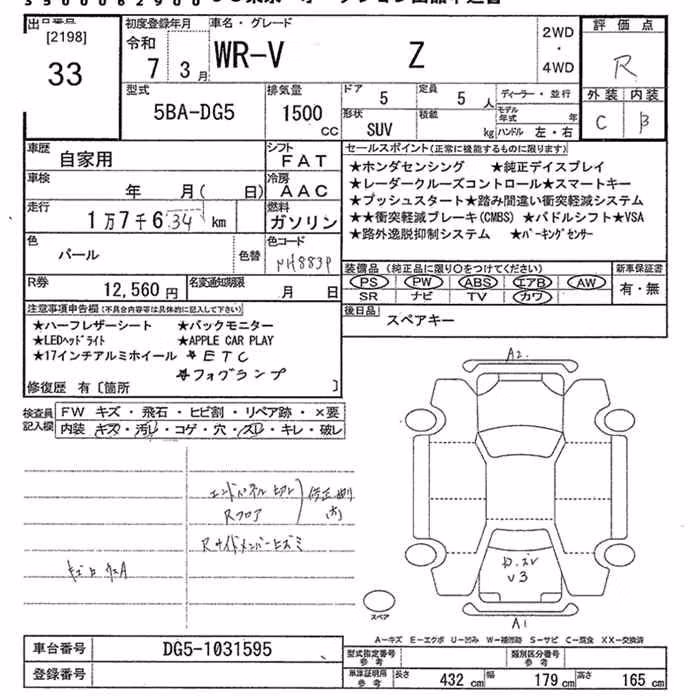 出品番号 初度登録年月 車名・グレード 2WD・4WD 評価点
[2198]
33
令和
7 3月
WR-V Z
R
型式 排気量 ドア 定員 ディーラー・並行 外装 内装
5BA-DG5 1500 cc 5 5人 モデル年式 年 C B
形状 積載
SUV kg ハンドル 左・右
車歴 シフト セールスポイント(正常に機能するものに限ります)
自家用 FAT
★ホンダセンシング ★純正デイスプレイ
車検 冷房 ★レーダークルーズコントロール★スマートキー
年 月( 日) AAC ★プッシュスタート★踏み間違い衝突軽減システム
走行 燃料 ★★衝突軽減ブレーキ(CMBS) ★パドルシフト★VSA
1万7千634km ガソリン ★路外逸脱抑制システム ★パーキングセンサー
色 色替 色コード
パール NH883P
装備品(純正品に限り○をつけてください) 新車保証書
PS PW ABS エアB AW 有・無
SR ナビ TV カワ
R券 名変通知期限
12,560円 月 日
後日品 スペアキー
注意事項申告欄(不具合内容等は具体的に記入して下さい)
★ハーフレザーシート ★バックモニター
★LEDヘッドライト ★APPLE CAR PLAY
★17インチアルミホイール ★ETC
★フォグランプ
修復歴 有〔箇所 〕
検査員記入欄 FW キズ・飛石・ヒビ割・リペア跡・×要
内装 キズ・汚レ・コゲ・穴・スレ・キレ・破レ
エンドパネル
Rフロア
Rサイドメンバーヒズミ
A2
V3
A1
スペア
A-キズ E-エクボ U-凹み W-補修跡 S-サビ C-腐食 XX-交換済
車台番号 DG5-1031595
登録番号
型式指定番号 参考 類別区分番号 参考
車庫証明用 参考 長さ 432cm 幅 179cm 高さ 165cm